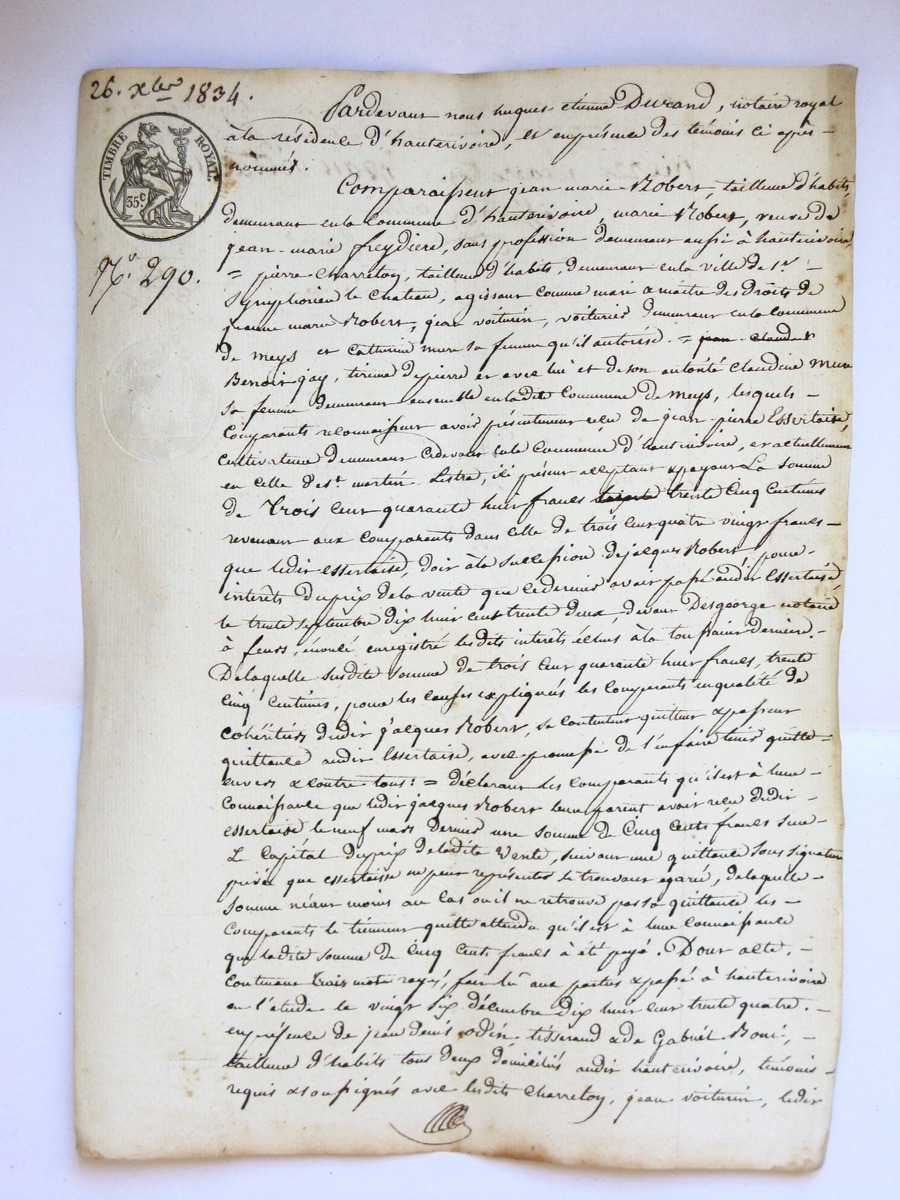 26. xbre 1834.
TIMBRE ROYAL.
35 c
N° 290.
Pardevant nous hugues etienne Durand, notaire royal
à la résidence d'hauterivoire, et en présence des témoins ci après
nommés.
Comparaissent jean marie Robert, tailleur d'habits,
demeurant en la Commune d'hauterivoire, marie Robert, veuve de
jean marie freydiere, sans profession demeurant aussi à hauterivoire,
= pierre Charretoy, tailleur d'habits, demeurant en la ville de St
Symphorien le Chateau, agissant comme mari & maitre des Droits de
jeanne marie Robert, jean voiturin, voiturier demeurant en la Commune
de meys et Catherine mure sa femme qu'il autorise. = jean claude
Benoit gay, tireur de pierre et avec lui et de son autorité Claudine mure
sa femme demeurant ensemble en ladite Commune de meys, lesquels
Comparants reconnaissent avoir présentement reçu de jean pierre Essertaise,
cultivateur demeurant cidevant en la Commune d'hauterivoire, et actuellement
en celle de St martin Lestra, ici présent acceptant & payant La somme
de Trois cent quarante huit francs trente Cinq Centimes
revenant aux comparants dans celle de trois cent quatre vingt francs
que ledit essertaise, doit à la succession de jacques Robert, pour
interêts du prix de la vente que ce dernier avait passé audit Essertaise,
le trente septembre dix huit cent trente deux, devant Desgeorge notaire
à feurs, enregistré lesdits interets échus à la toussaint dernière.
De laquelle susdite somme de trois cent quarante huit francs, trente
cinq Centimes, pour les causes expliquées les comparants en qualité de
cohéritiers dudit jacques Robert, se contentent quittent & passent
quittance audit Essertaise, avec promesse de l'en faire tenir quitte
envers & contre tous: = déclarant les comparants qu'il est à leur
Connaissance que ledit jacques Robert leur parent avoit reçu dudit
essertaise le neuf mars dernier une somme de Cinq Cents francs sur
Le Capital du prix de ladite Vente, suivant une quittance sous signature
privée que essertaise ne peut représenter se trouvant égarée, de laquelle
somme néant moins au cas où il ne retrouve pas sa quittance les
Comparants le tiennent quitte attendu qu'il est à leur connaissance
que ladite somme de Cinq Cent francs à été payé. Dont acte,
contenant trois mots rayés, fait lu aux parties & passé à hauterivoire
en l'étude le vingt six décembre dix huit cent trente quatre.
en présence de jean denis odin, tisserand & de Gabriel Boni,
tailleur d'habits tous deux domiciliés audit hauterivoire, témoins
requis & soussignés avec lesdits Charretoy, jean voiturin, ledit